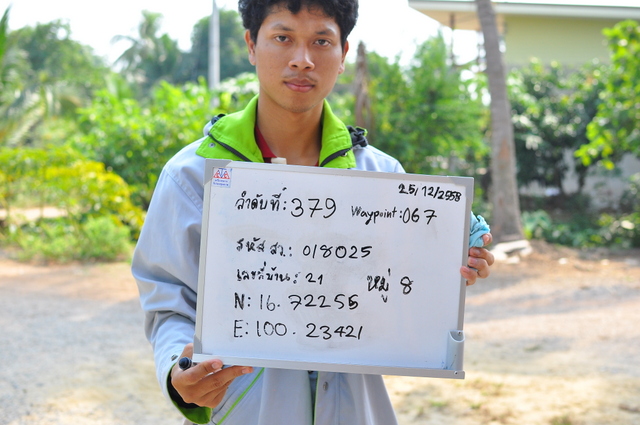 25/12/2558
ลำดับที่: 379 Waypoint: 067
รหัส สว.: 018025
เลขที่บ้าน: 21 หมู่ 8
N: 16.72255
E: 100.23421